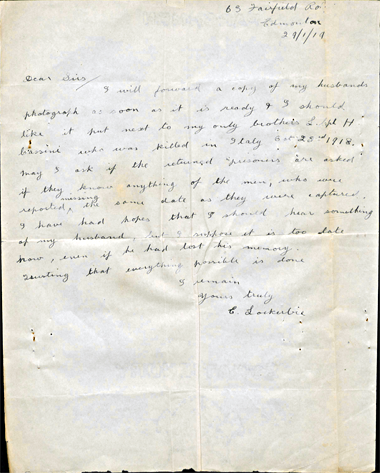 63 Fairfield Rd
Edmonton
29/1/19
Dear Sirs/
I will forward a copy of my husbands
photograph as soon as it is ready & I should
like it put next to my only brothers L/cpl H
Cassini who was killed in Italy Oct 23rd 1918.
May I ask if the returned prisoners are asked
if they know anything of the men, who were
missing
reported, the same date as they were captured.
I have had hopes that I should hear something
of my husband, but I suppose it is too late
now, even if he had lost his memory.
Trusting that everything possible is done
I remain
Yours truly
C Lockerbie